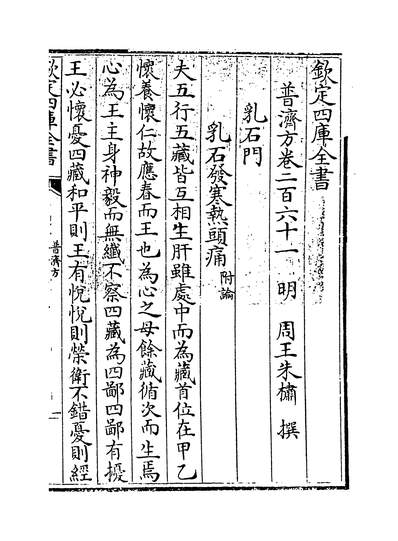 欽定四庫全書
普濟方卷二百六十一 明 周王朱橚 撰
乳石門
乳石發寒熱頭痛 附論
夫五行五藏皆互相生肝雖處中而為藏首位在甲乙
懷養懷仁故應春而王也為心之母餘藏循次而生焉
心為王主身神毅而無纖不察四藏為四鄙四鄙有擾
王必懷憂四藏和平則王有悅悅則榮衛不錯憂則經
欽定四庫全書
普濟方
一